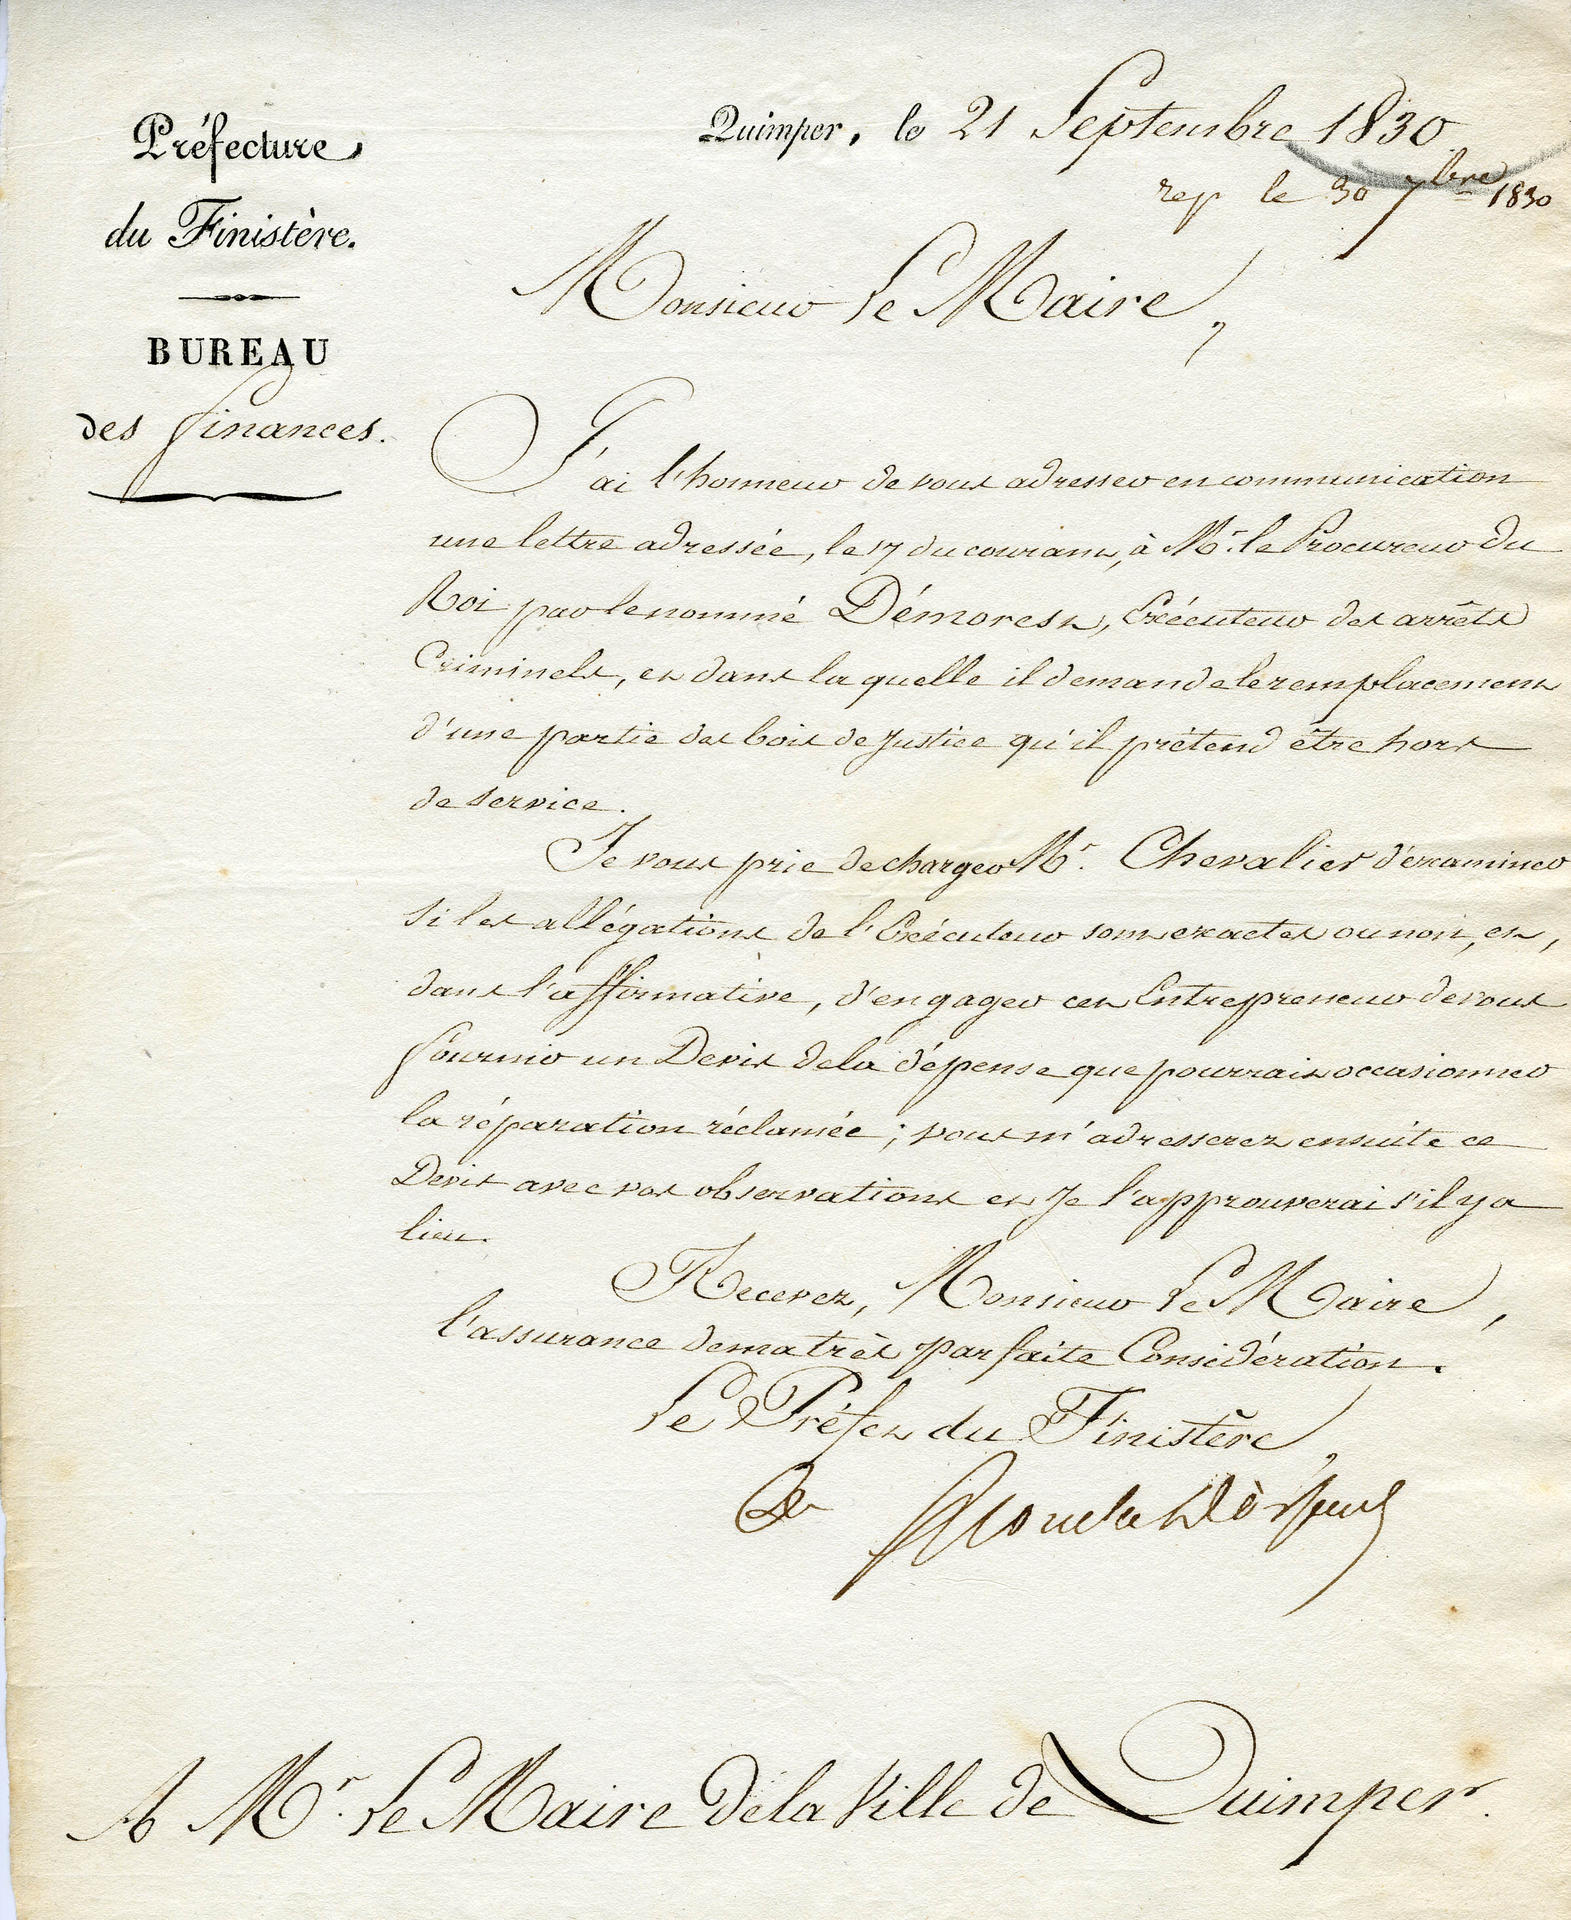 Préfecture
du Finistère.
BUREAU
des finances.
Quimper, le 21 Septembre 1830
rep le 30 7bre 1830
Monsieur Le Maire,
J'ai l'honneur de vous adresser en communication
une lettre adressée, le 17 du courant, à Mr. le Procureur du
Roi par le nommé Démorest, Exécuteur des arrêts
Criminels, et dans la quelle il demande le remplacement
d'une partie des bois de Justice qu'il prétend être hors
de service.
Je vous prie de charger Mr. Chevalier d'examiner
si les allégations de l'Exécuteur sont exactes ou non, et,
dans l'affirmative, d'engager cet Entrepreneur de vous
fournir un Devis de la dépense que pourrait occasionner
la réparation réclamée; vous m'adresserez ensuite ce
Devis avec vos observations et Je l'approuverai s'il y a
lieu.
Recevez, Monsieur Le Maire,
l'assurance de ma très parfaite Considération.
Le Préfet du Finistère,
A Mr. Le Maire de la Ville de Quimper.